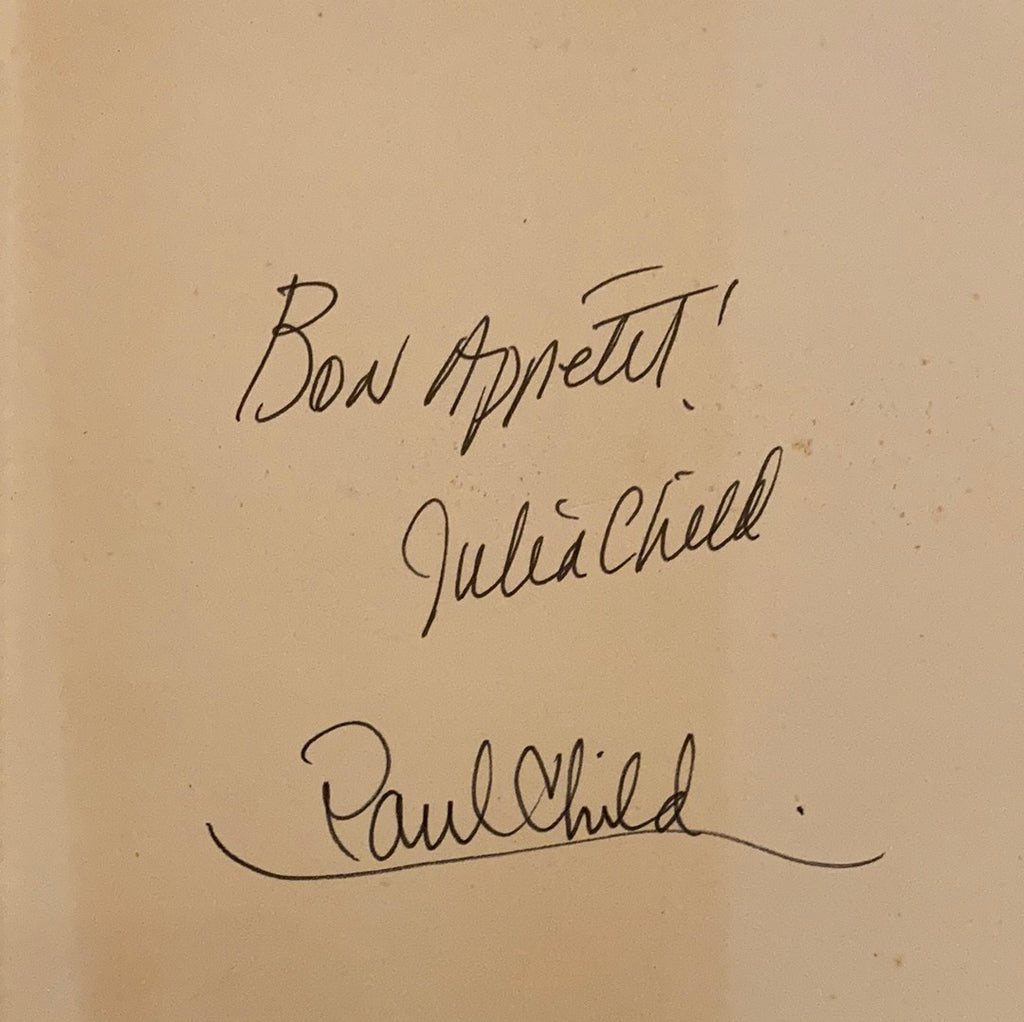 Bon Appétit!
Julia Child
Paul Child